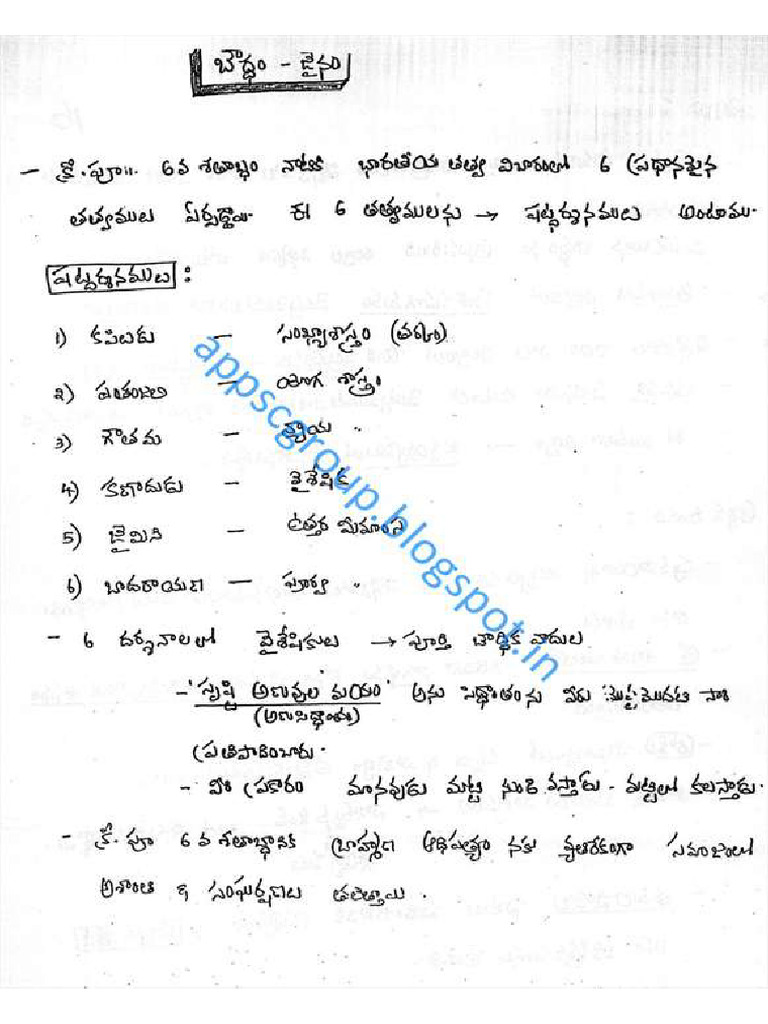 బౌద్ధం - జైనం
- క్రీ.పూ॥ 6వ శతాబ్దం నాటికి భారతీయ తత్వ విచారంలో 6 ప్రధానమైన
తత్వములు ఏర్పడ్డాయి. ఈ 6 తత్వములను → షట్దర్శనములు అంటాము.
షట్దర్శనములు :
1) కపిలుడు - సాంఖ్యాశాస్త్రం (తర్కం)
2) పతంజలి - యోగ శాస్త్రం
3) గౌతమ - న్యాయ "
4) కణాదుడు - వైశేషిక
5) జైమిని - ఉత్తర మీమాంస
6) బాదరాయణ - పూర్వ "
- 6 దర్శనాలలో వైశేషికులు → పూర్తి వాదులు
- 'సృష్టి అణువుల మయం' అను సిద్ధాంతంను వీరు మొట్టమొదటి సారి
(అణుసిద్ధాంతం)
ప్రతిపాదించారు.
- వీరి ప్రకారం మానవుడు మట్టి నుండి వస్తాడు - మట్టిలో కలుస్తాడు.
- క్రీ.పూ 6 వ శతాబ్ధానికి బ్రాహ్మణ ఆధిపత్యం నకు వ్యతిరేకంగా సమాజంలో
అశాంతి & సంఘర్షణలు తలెత్తాయి.
appscgroup.blogspot.in